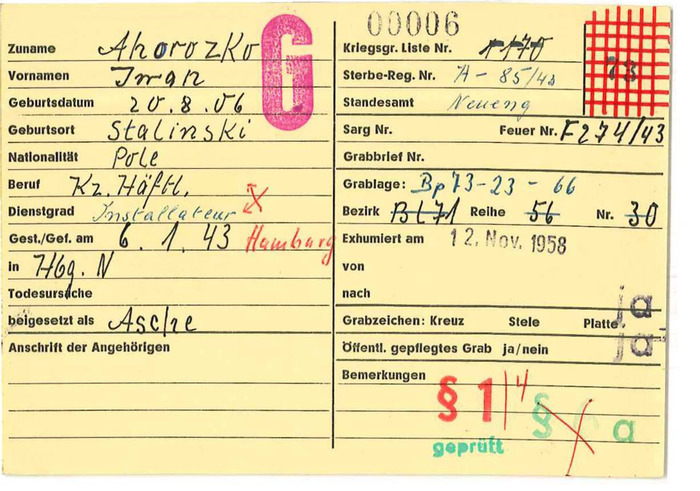 Zuname Ahorozko
Vornamen Iwan
Geburtsdatum 20.8.06
Geburtsort Stalinski
Nationalität Pole
Beruf Kz. Häftl.
Dienstgrad Installateur
Gest./Gef. am 6. 1. 43 Hamburg
in Hbg. N
Todesursache
beigesetzt als Asche
Anschrift der Angehörigen
G
00006
Kriegsgr. Liste Nr. 1170
Sterbe-Reg. Nr. A - 85/43
73
Standesamt Neueng
Sarg Nr. Feuer Nr. F274/43
Grabbrief Nr.
Grablage: Bp 73-23-66
Bezirk Bl71 Reihe 56 Nr. 30
Exhumiert am 12. Nov. 1958
von
nach
ja
Grabzeichen: Kreuz Stele Platte
Öffentl. gepflegtes Grab ja/nein ja
Bemerkungen
§ 1/4 § a
geprüft